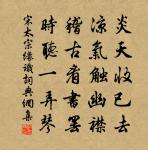 炎天收已去
凉氣觸幽襟
稽古看書罷
時聽一弄琴
宋太宗緣識詞典網集